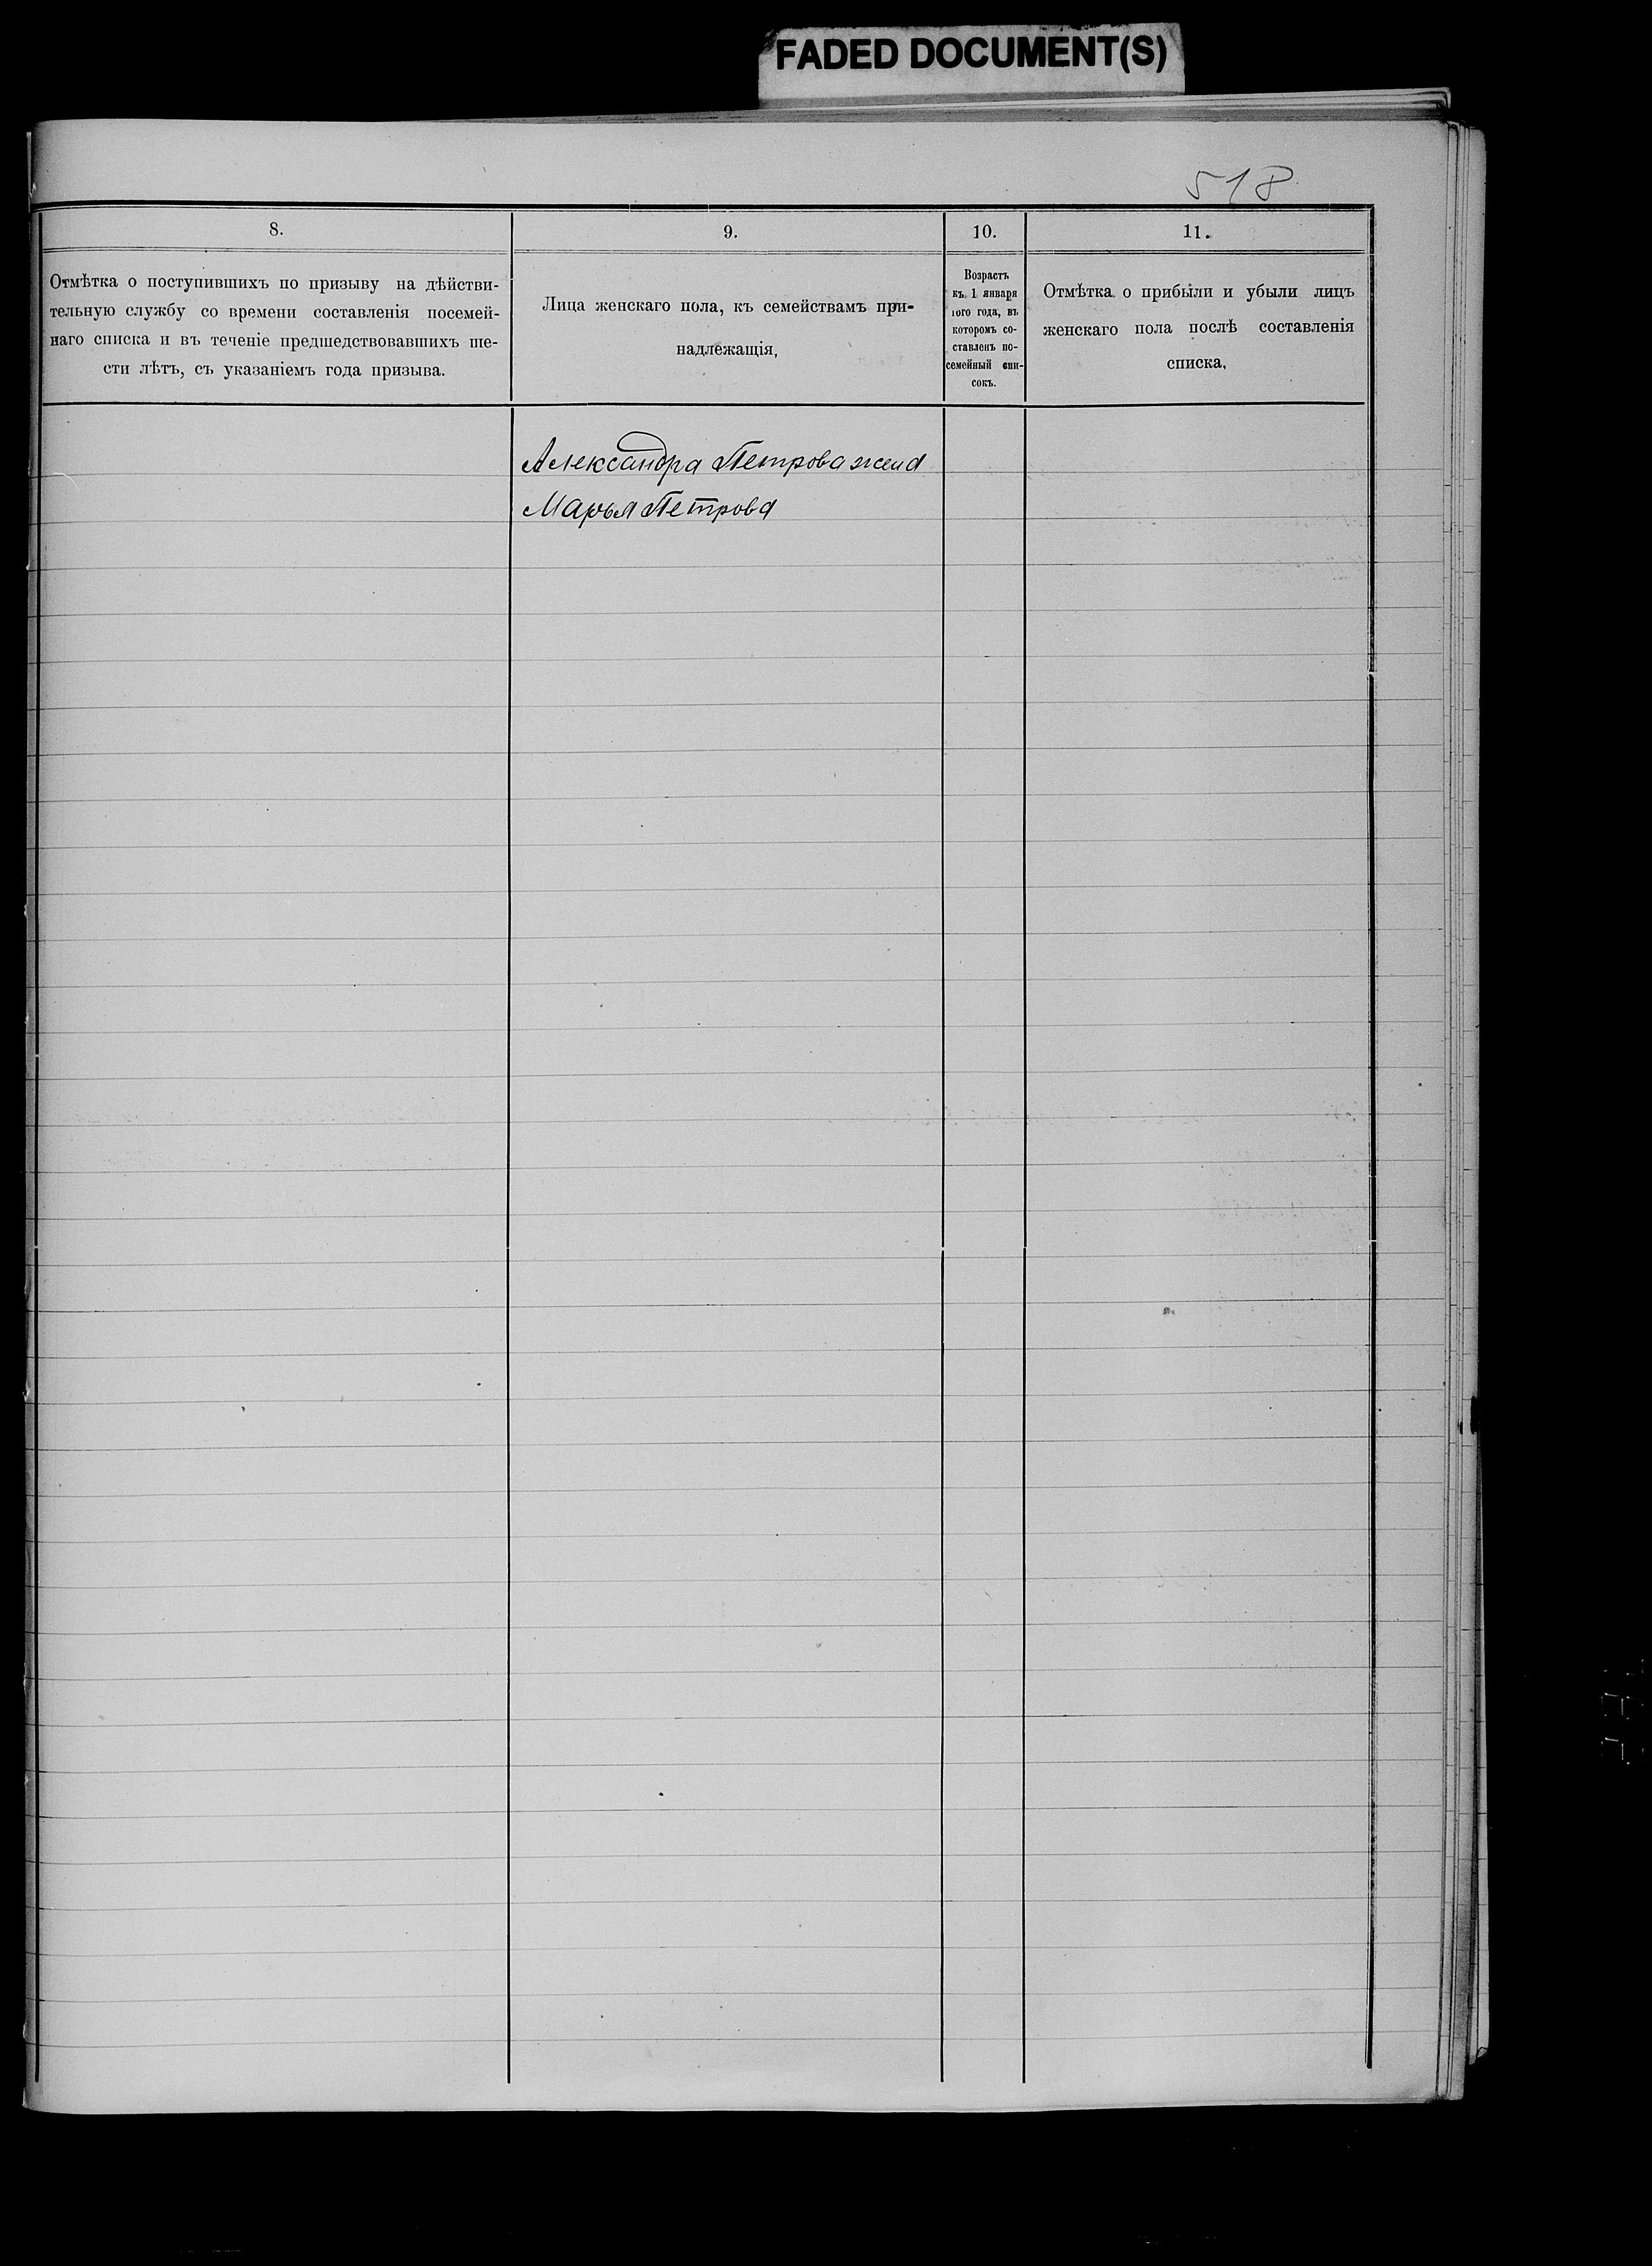 FADED DOCUMENT(S)
518
8.
Отмѣтка о поступившихъ по призыву на дѣйстви-
тельную службу со времени составленія посемей-
наго списка и въ теченіе предшедствовавшихъ ше-
сти лѣтъ, съ указаніемъ года призыва.
9.
Лица женскаго пола, къ семействамъ при-
надлежащія,
10.
Возрастъ
къ 1 января
того года, въ
которомъ со-
ставленъ по-
семейный спи-
сокъ.
11.
Отмѣтка о прибыли и убыли лицъ
женскаго пола послѣ составленія
списка,
Александра Петрова жена
Марья Петрова